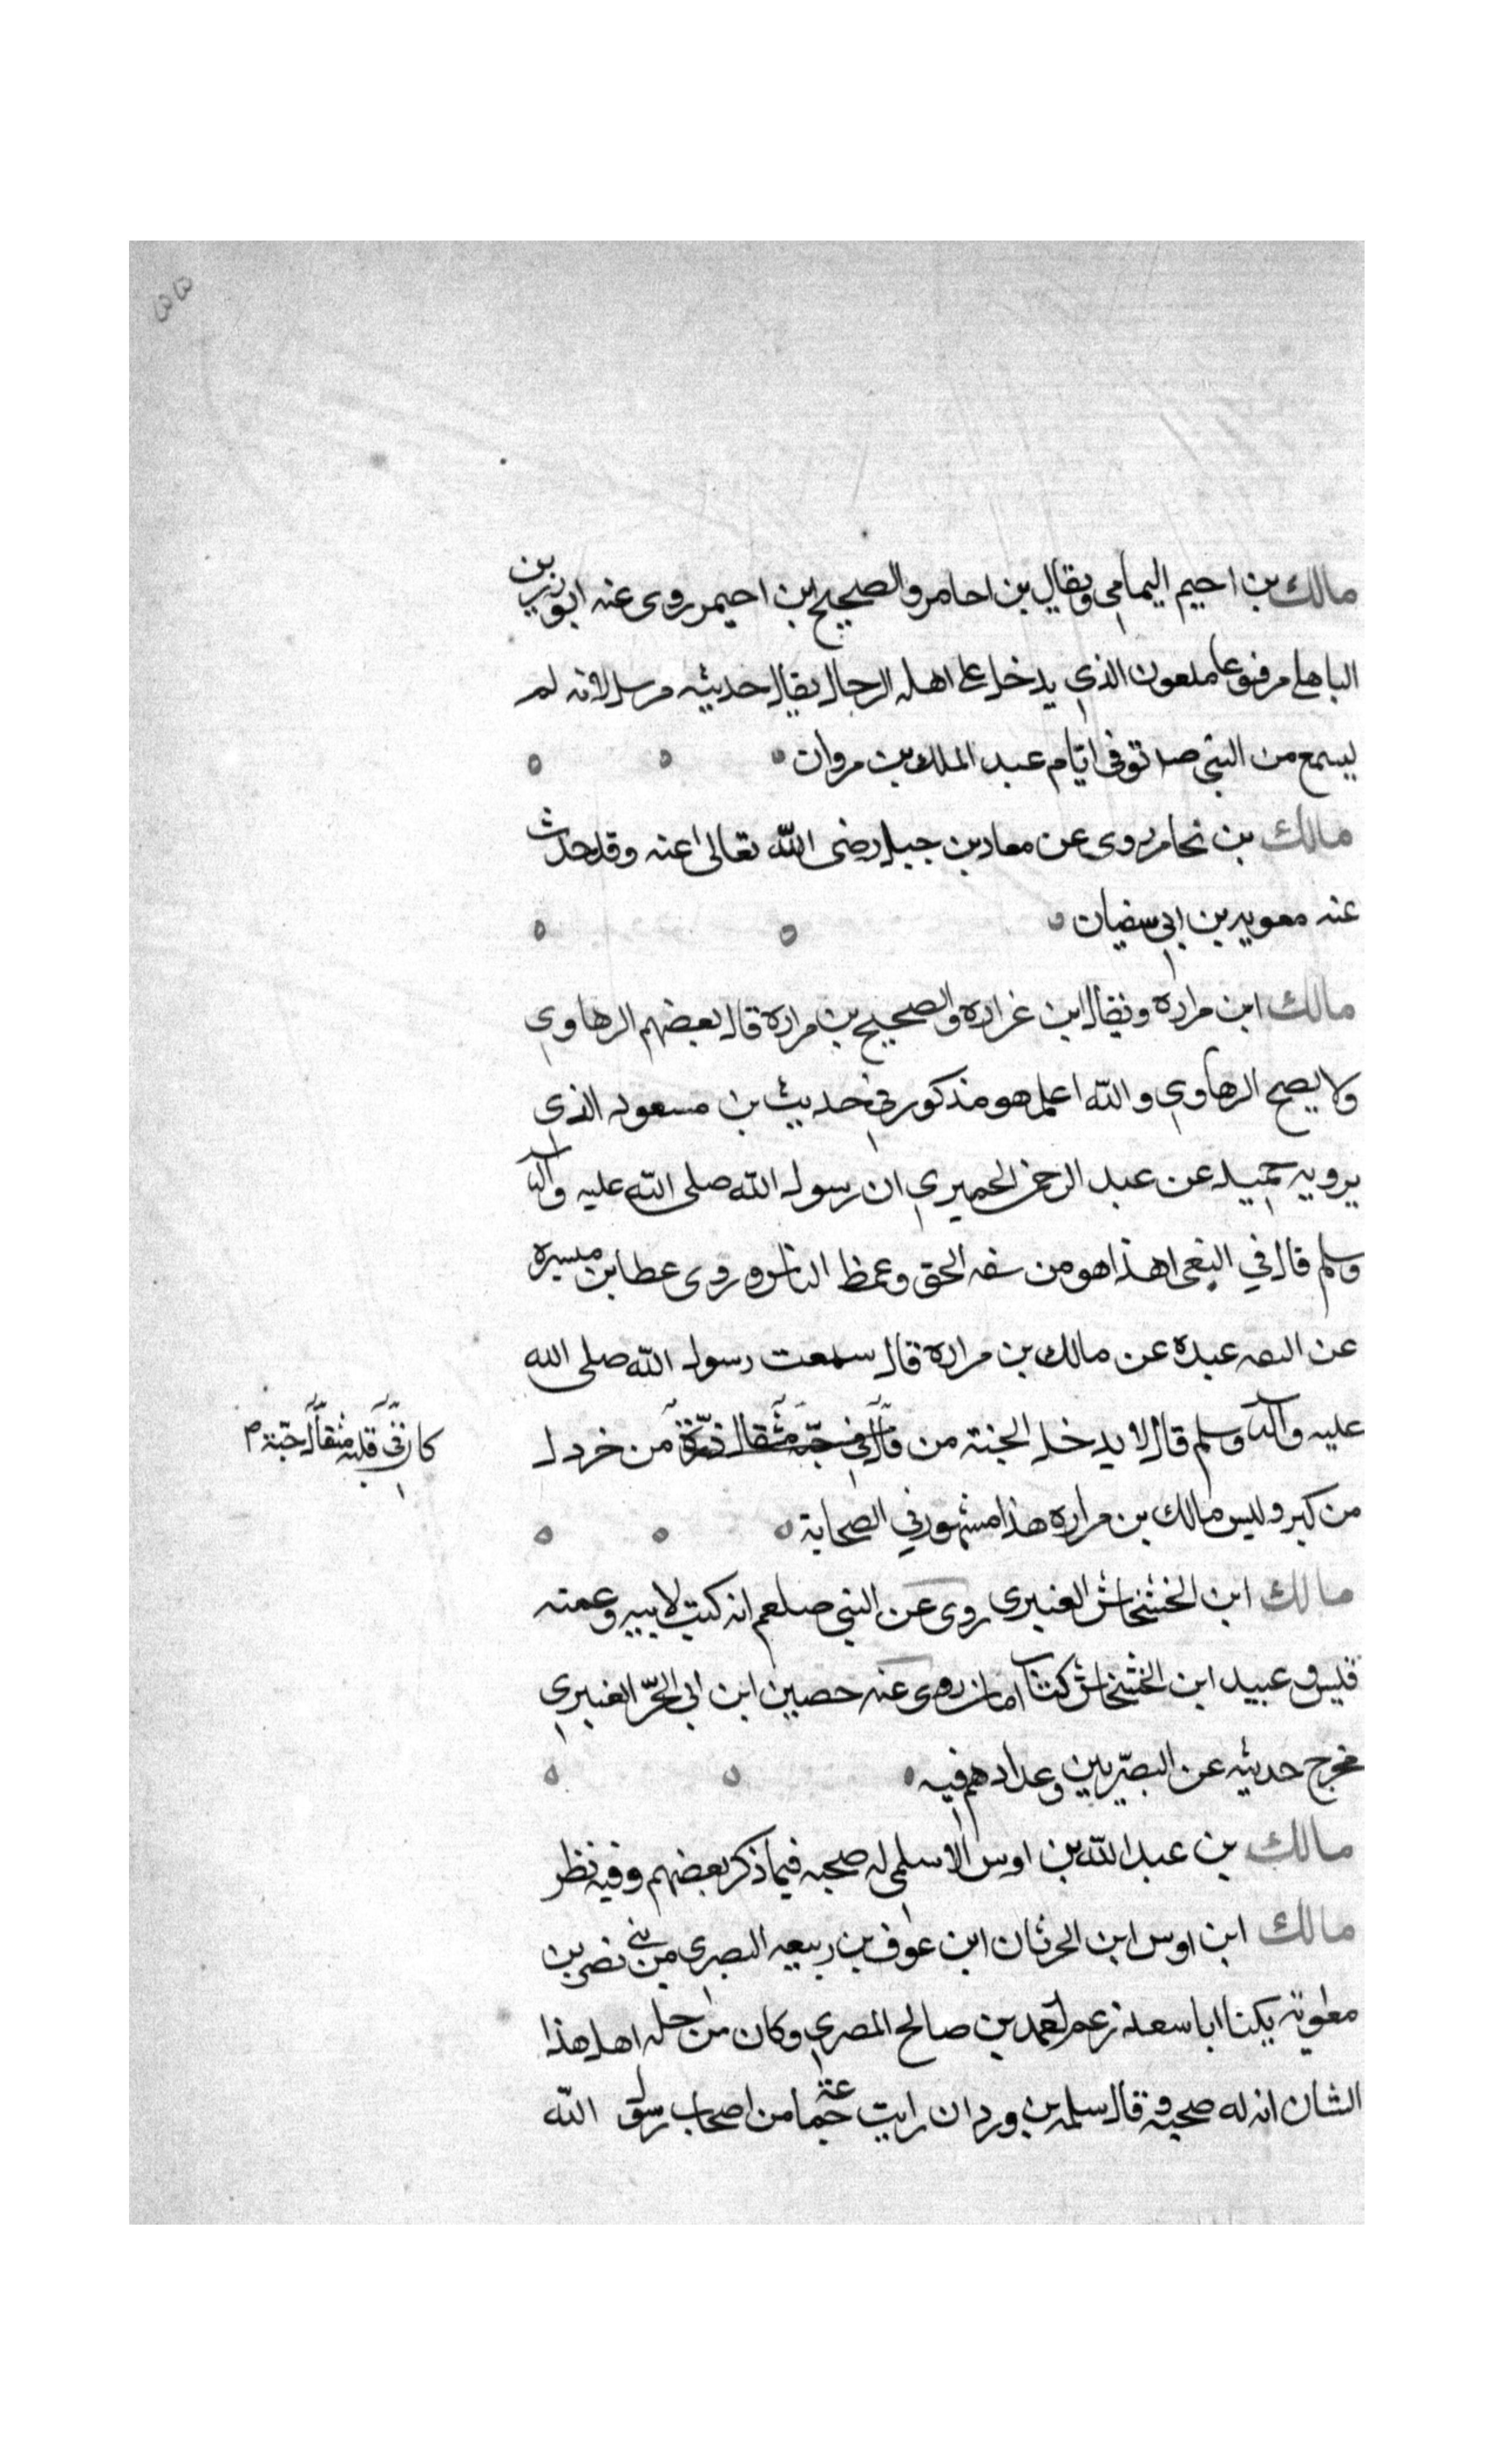 ٥٥
مالك بن احيم اليمامي ويقال بن احامر والصحيح ابن احيمر روى عنه ابو زرين
الباهلي مرفوعا ملعون الذي يدخل على اهله الرجال يقال حديثه مرسل لانه لم
يسمع من النبي صلا توفى ايام عبد الملك بن مروان
مالك بن نحامر روى عن معاد بن جبل رضى الله تعالى عنه وقد حدث
عنه معويه بن ابي سفيان
مالك ابن مراده ويقال ابن غراره والصحيح بن مراره قال بعضهم الرهاوي
ولا يصح الرهاوي والله اعلم هو مذكور في حديث بن مسعود الذي
يرويه حميد عن عبد الرحمن الحميري ان رسول الله صلى الله عليه واله
وسلم قال في البغي اهذا هو من سفه الحق وغمط الناس وروى عطا بن ميسره
عن عبده عن مالك بن مراره قال سمعت رسول الله صلى الله
عليه واله وسلم قال لا يدخل الجنة من قال في حبه مثقال ذرة من خردل
كان في قلبه مثقال حبة م
من كبر وليس مالك بن مراره هذا مشهور في الصحابة
مالك ابن الخشخاش العنبري روى عن النبي صلعم انه كتب لابيه وعمته
قيس و عبيد ابن الخشخاش كتاب امان روى عنه حصين ابن ابي الحر العنبري
مخرج حديثه عن البصريين وعدادهم فيه
مالك بن عبد الله بن اوس الاسلمي له صحبه فيما ذكر بعضهم وفيه نظر
مالك ابن اوس ابن الحرثان ابن عوف بن ربيعه البصري من بني نصر بن
معاوية يكنا ابا سعد زعم احمد بن صالح المصري وكان من جله اهل هذا
الشان انه له صحبه و قال سلمه بن وردان رايت جماعة من اصحاب رسول الله